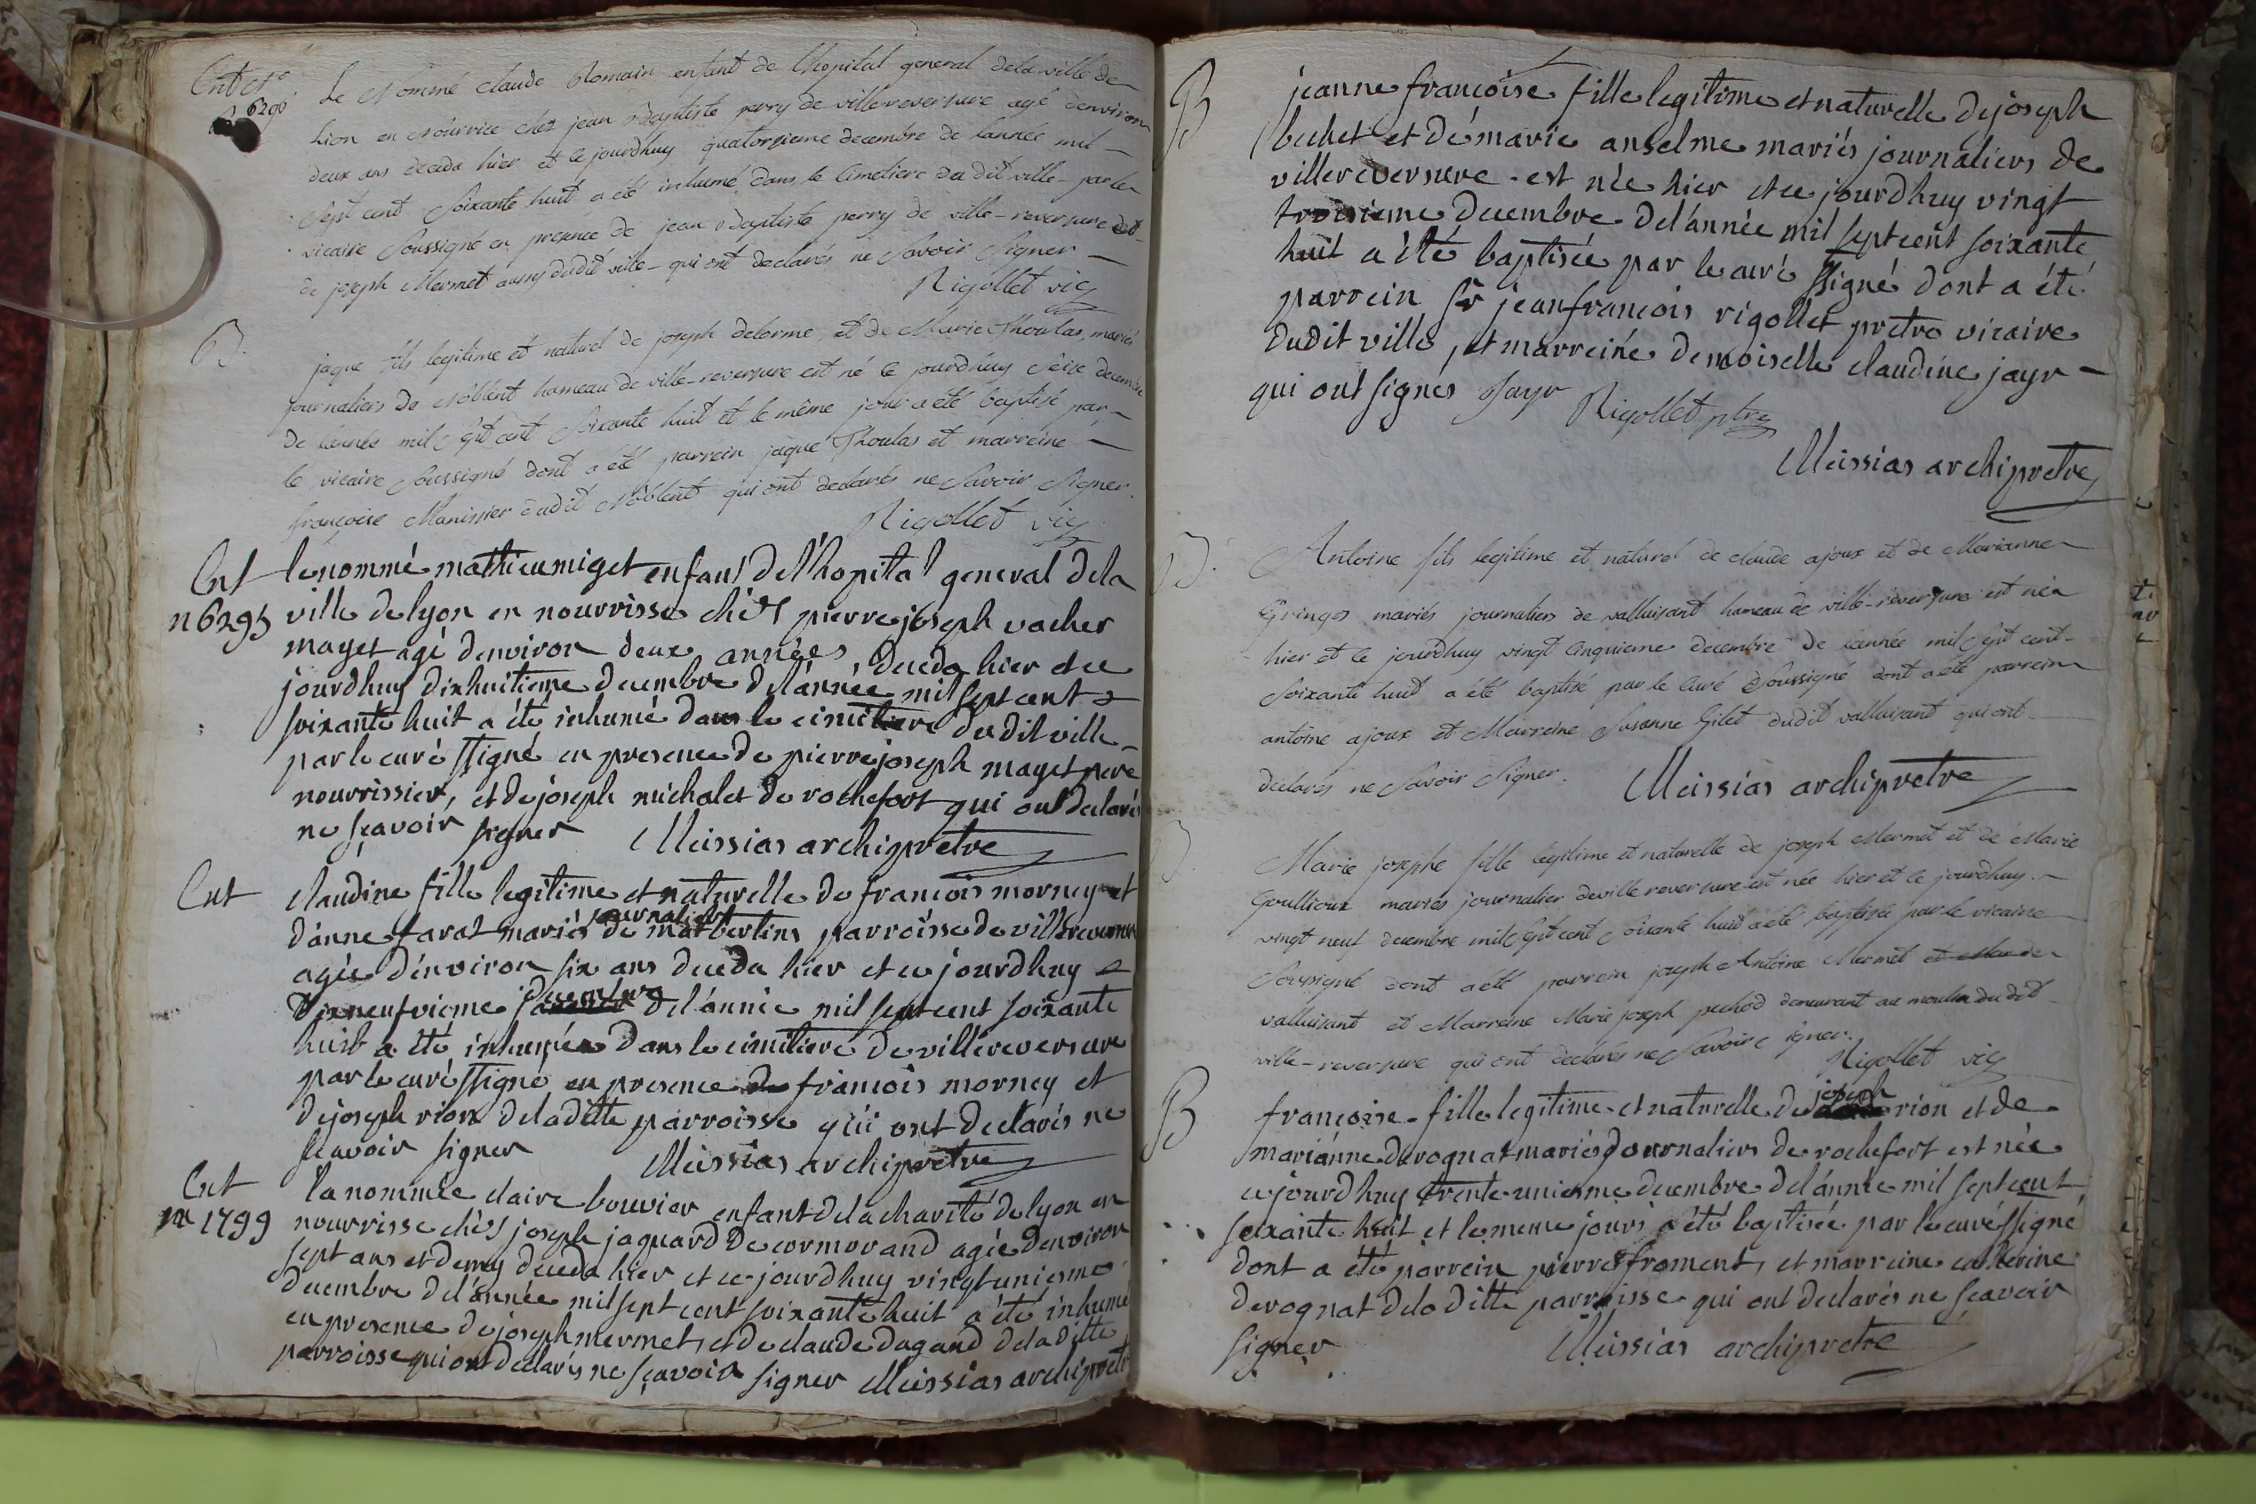 Ent et
6290
Le Nommé claude Romain enfant de l'hopital general de la ville de
Lion en Nourrice chez jean Baptiste perry de villereversure agé denviron
deux ans deceda hier et ce jourdhuy quatorsieme decembre de l'année mil
sept cent soixante huit a été inhumé dans le cimetiere du dit ville par le
vicaire soussigné en presence de jean Baptiste perry de ville-reversure et
de joseph Mermet aussy dudit ville qui ont declarés ne savoir signer
Rigollet vic
B
jaque fils legitime et naturel de joseph delorme et de Marie Thoulas, mariés
journaliers de Noblent hameau de ville-reversure est né ce jourdhuy seise decembre
de l'année mil sept cent soixante huit et le même jour a été baptisé par
le vicaire soussigné dont a été parrein jaque Thoulas et marreine
françoise Manissier dudit Noblent qui ont declarés ne savoir signer.
Rigollet vic
Ent
n 6295
le nommé mathieu miget enfant de l'hopital general dela
ville de lyon en nourrisse chés pierre joseph vacher
mayet agé denviron deux années, deceda hier et ce
jourdhuy dixhuitieme decembre de l'année mil sept cent
soixante huit a été inhumé dans le cimitiere du dit ville
par le curé ssigné en presence de pierre joseph mayet pere
nourrissier, et de joseph michalet de rochefort qui ont declarés
ne sçavoir signer Meissias archipretre
Ent
claudine fille legitime et naturelle de francois morney et
d'anne farat mariés journaliers de mas bertins parroisse de villereversure
agée d'environ six ans deceda hier et ce jourdhuy
dixneufvieme decembre de l'année mil sept cent soixante
huit a été inhumée dans le cimitiere de villereversure
par le curé ssigné en presence de francois morney et
de joseph rion de la ditte parroisse qui ont declarés ne
sçavoir signer Meissias archipretre
Ent
n 1799
la nommée claire bouvier enfant de la charité de lyon en
nourrisse chés joseph jaquard de cormorand agée denviron
sept ans et demy deceda hier et ce jourdhuy vingt uniesme
decembre de l'année mil sept cent soixante huit a été inhumé
en presence de joseph mermet, et de claude dagand de la ditte
parroisse qui ont declarés ne sçavoir signer Meissias archipretre
B
jeanne françoise fille legitime et naturelle de joseph
bechet et de marie anselme mariés journaliers de
villereversure est née hier et ce jourdhuy vingt
troisieme decembre de l'année mil sept cent soixante
huit a été baptisée par le curé ssigné dont a été
parrein sr jean francois rigollet pretre vicaire
dudit ville, et marreine demoiselle claudine jayr
qui ont signés Jayr Rigollet ptre
Meissias archipretre
B
Antoine fils legitime et naturel de claude ajoux et de Marianne
Gringos mariés journaliers de valluisant hameau de ville-reversure est né
hier et ce jourdhuy vingt cinquieme decembre de l'année mil sept cent
soixante huit a été baptisé par le curé soussigné dont a été parrein
antoine ajoux et Marreine Susanne Gilet dudit valluisant qui ont
declarés ne savoir signer. Meissias archipretre
Marie josephe fille legitime et naturelle de joseph Mermet et de Marie
Goullioux mariés journalier de ville reversure est née hier et ce jourdhuy
vingt neuf decembre mil sept cent soixante huit a été baptisée par le vicaire
soussigné dont a été parrein joseph Antoine Mermet
valluisant et Marreine Marie joseph pechod demeurant au moulin du dit
ville-reversure qui ont declarés ne savoir signer.
Rigollet vic
B
françoise fille legitime et naturelle de joseph rion et de
marianne derognat mariés journaliers de rochefort est née
ce jourdhuy trente uniesme decembre de l'année mil sept cent
soixante huit et le meme jour a été baptisée par le curé ssigné
dont a été parrein pierre froment, et marreine catherine
derognat de la ditte parroisse qui ont declarés ne sçavoir
signer Meissias archipretre